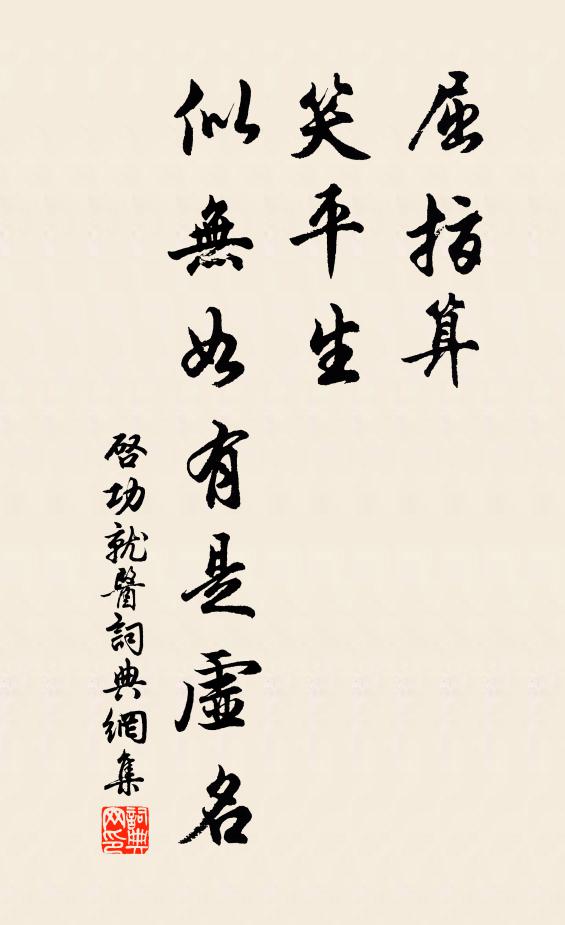 屈指算
笑平生
似無如有是虛名
啓功就醫詞典網集
詞典网印